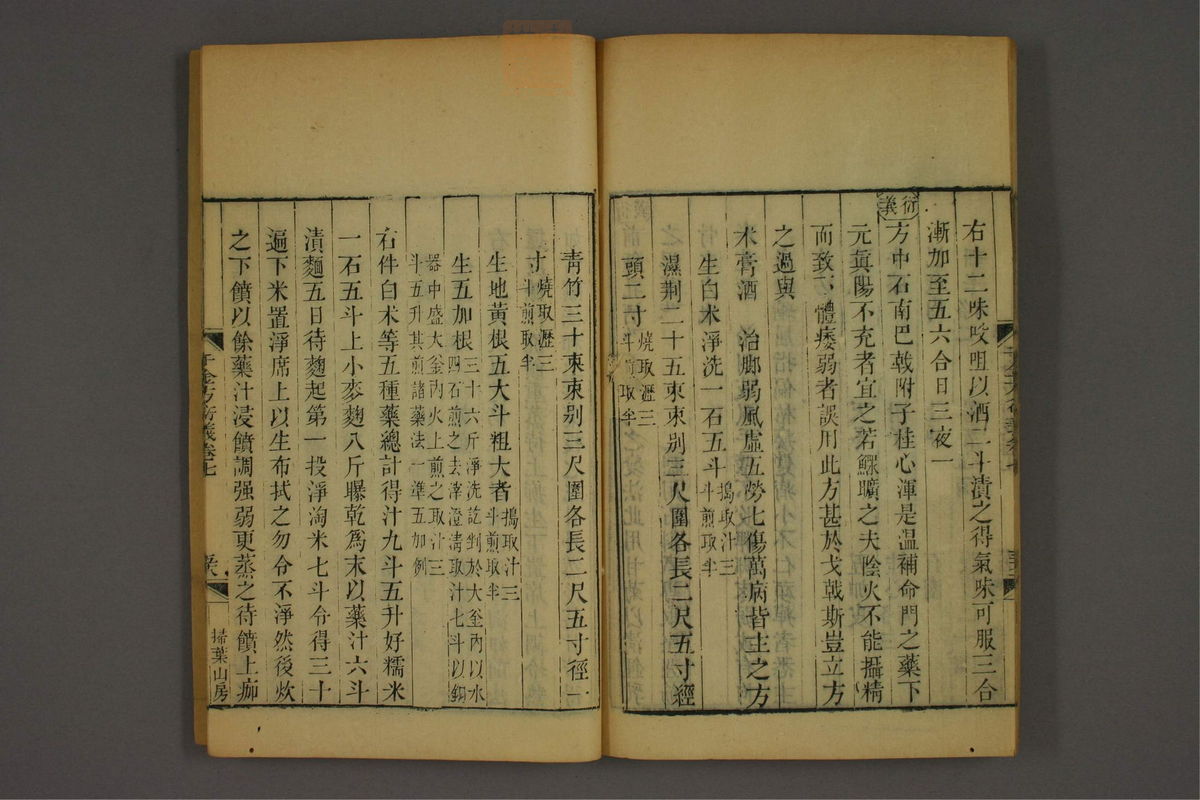 右十二味㕮咀以酒二斗漬之得氣味可服三合
漸加至五六合日三夜一
衍義
方中石南巴戟附子桂心渾是温補命門之藥下
元眞陽不充者宜之若鰥曠之夫陰火不能攝精
而致下體痿弱者誤用此方甚於戈戟斯豈立方
之過與
术膏酒 治脚弱風虛五勞七傷萬病皆主之方
生白术淨洗一石五斗搗取汁三斗煎取半
濕荆二十五束束别三尺圍各長二尺五寸經
頭二寸燒取瀝三斗煎取半
青竹三十束束别三尺圍各長二尺五寸徑一
寸燒取瀝三斗煎取半
生地黃根五大斗粗大者搗取汁三斗煎取半
生五加根三十六斤淨洗訖剉於大釜內以水四石煎之去滓澄清取汁七斗以銅
器中盛大釜內火上煎之取汁三斗五升其煎諸藥法一準五加例
右件白术等五種藥總計得汁九斗五升好糯米
一石五斗上小麥麴八斤曝乾爲末以藥汁六斗
漬麵五日待麴起第一投淨淘米七斗令得三十
遍下米置淨席上以生布拭之勿令不淨然後炊
之下饙以餘藥汁浸饙調强弱更蒸之待饙上痂
千金方衍義卷七
掃葉山房